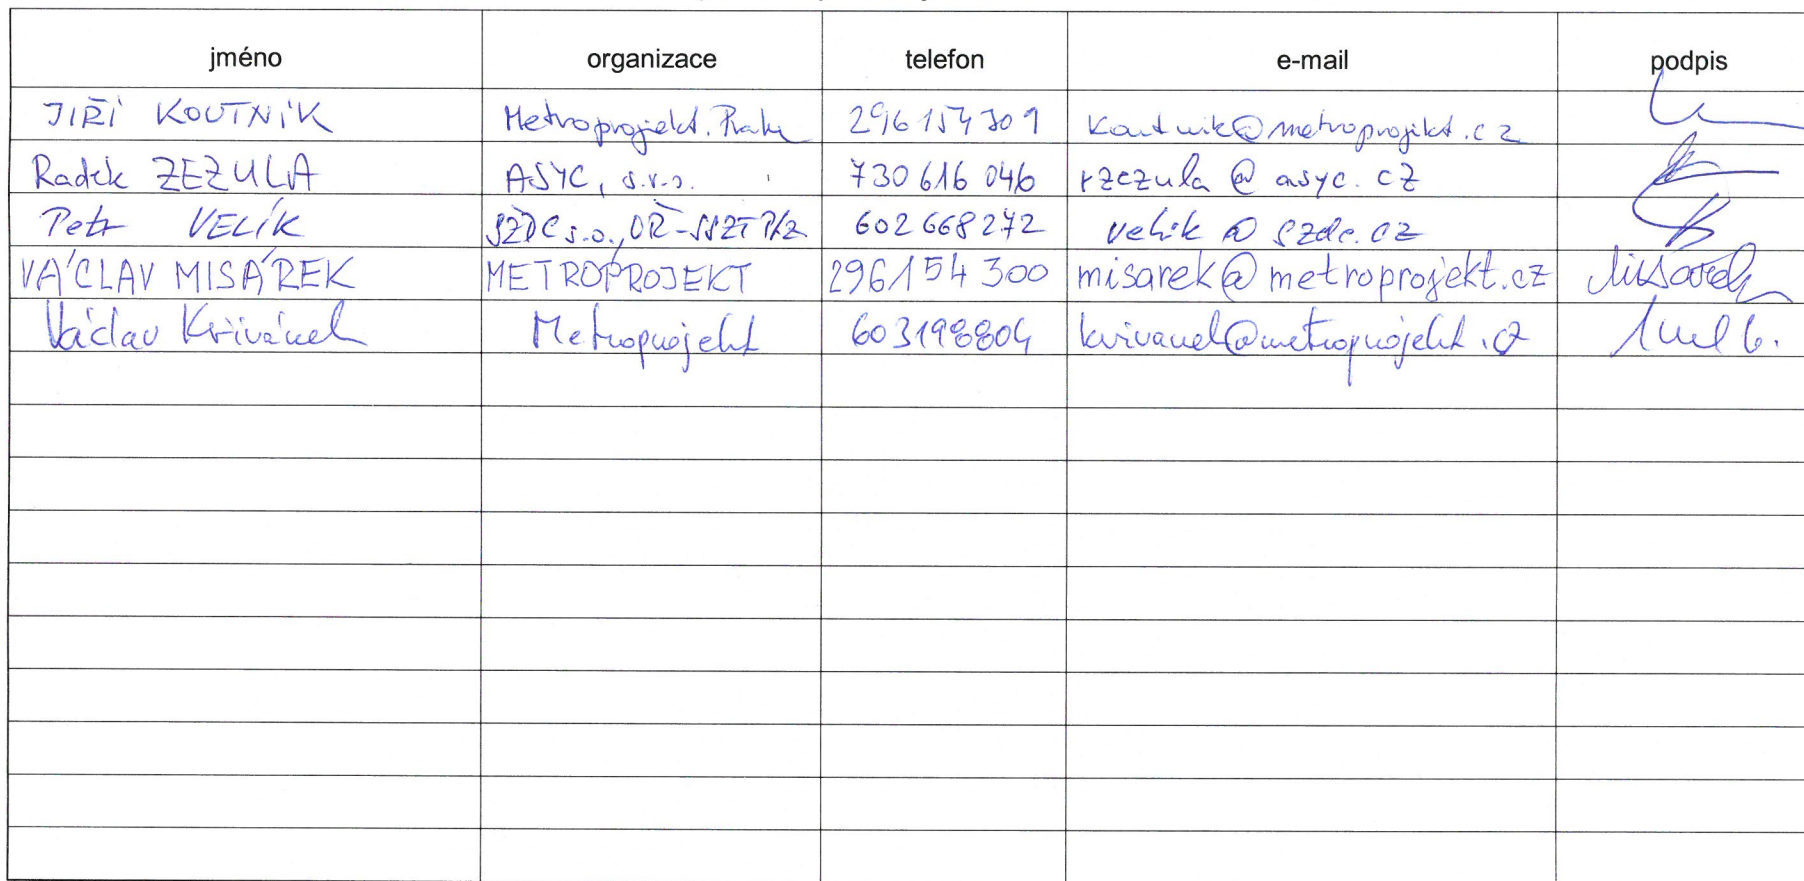 jméno organizace telefon e-mail podpis
JIŘÍ KOUTNÍK Metroprojekt. Praha 296 154 309 koutnik@metroprojekt.cz
Radek ZEZULA ASYC, s.r.o. 730 616 046 rzezula@asyc.cz
Petr VELÍK SŽDC s.o., OŘ-SSZT Plz 602 668 272 velik@szdc.cz
VÁCLAV MISÁREK METROPROJEKT 296154 300 misarek@metroprojekt.cz Misarek
Václav Křivánek Metroprojekt 603198804 krivanek@metroprojekt.cz